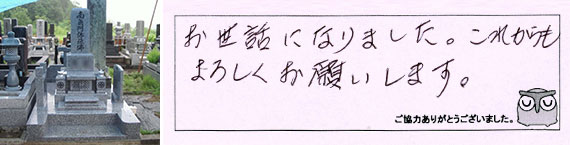 お世話になりました。これからも
よろしくお願いします。
ご協力ありがとうございました。